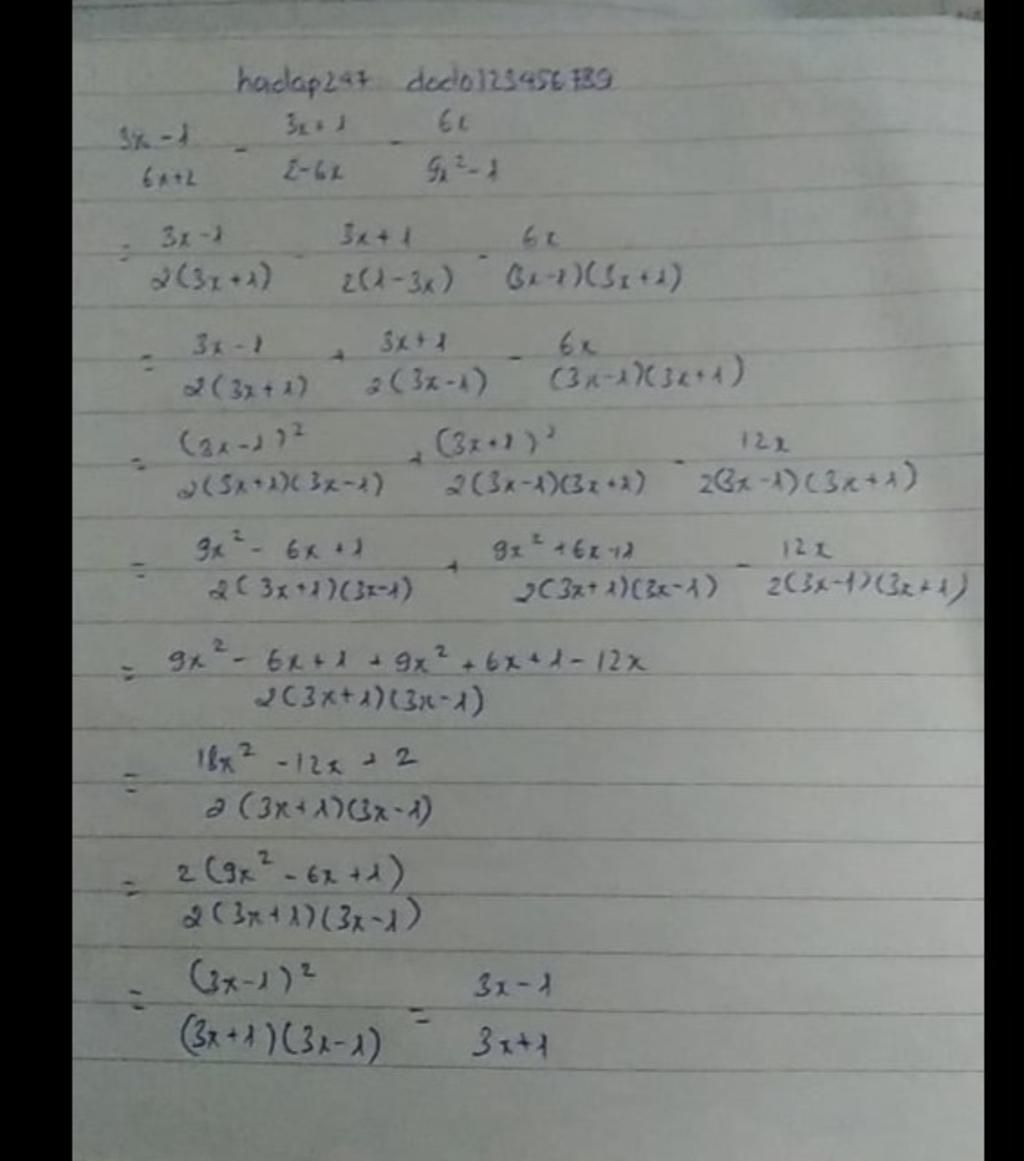 hadap247 dodo123456789
3x - 1 / 6x + 2 - 3x + 1 / 2 - 6x - 6x / 9x² - 1
= 3x - 1 / 2(3x + 1) - 3x + 1 / 2(1 - 3x) - 6x / (3x - 1)(3x + 1)
= 3x - 1 / 2(3x + 1) + 3x + 1 / 2(3x - 1) - 6x / (3x - 1)(3x + 1)
= (3x - 1)² / 2(3x + 1)(3x - 1) + (3x + 1)² / 2(3x - 1)(3x + 1) - 12x / 2(3x - 1)(3x + 1)
= 9x² - 6x + 1 / 2(3x + 1)(3x - 1) + 9x² + 6x + 1 / 2(3x + 1)(3x - 1) - 12x / 2(3x - 1)(3x + 1)
= 9x² - 6x + 1 + 9x² + 6x + 1 - 12x / 2(3x + 1)(3x - 1)
= 18x² - 12x + 2 / 2(3x + 1)(3x - 1)
= 2(9x² - 6x + 1) / 2(3x + 1)(3x - 1)
= (3x - 1)² / (3x + 1)(3x - 1) = 3x - 1 / 3x + 1